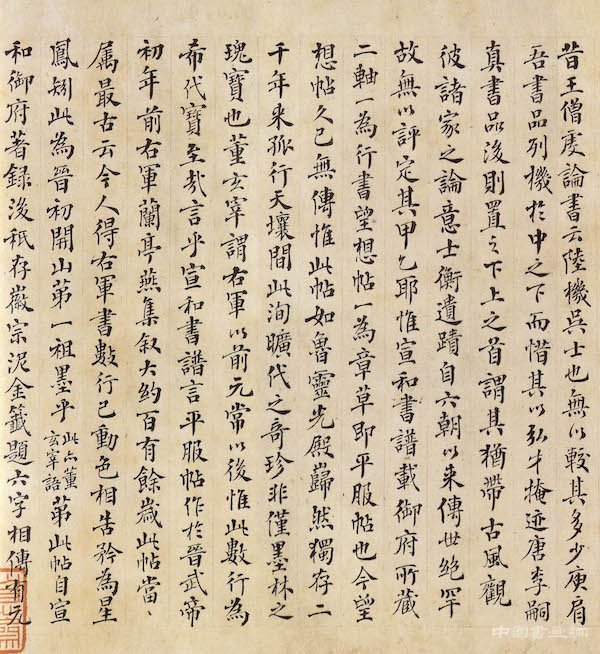 昔王僧虔論書云陸機吳士也無以較其多少庾肩
吾書品列機於中之下而惜其以弘才掩迹唐李嗣
真書品後則置之下上之首謂其猶帶古風觀
彼諸家之論意士衡遺蹟自六朝以來傳世絕罕
故無以評定其甲乙耶惟宣和書譜載御府所藏
二軸一為行書望想帖一為章草即平服帖也今望
想帖久已無傳惟此帖如魯靈光殿巋然獨存二
千年來孤行天壤間此洵曠代之奇珍非僅墨林之
瑰寶也董玄宰謂右軍以前元常以後惟此數行為
希代寶至哉言乎宣和書譜言平服帖作於晉武帝
初年前右軍蘭亭燕集敘大約百有餘歲此帖當、
属最古云今人得右軍書數行已動色相告矜為星
鳳矧此為晉初開山第一祖墨乎此亦董玄宰語第此帖自宣
和御府著錄後秖存徽宗泥金籤題六字相傳有元
中國書畫網